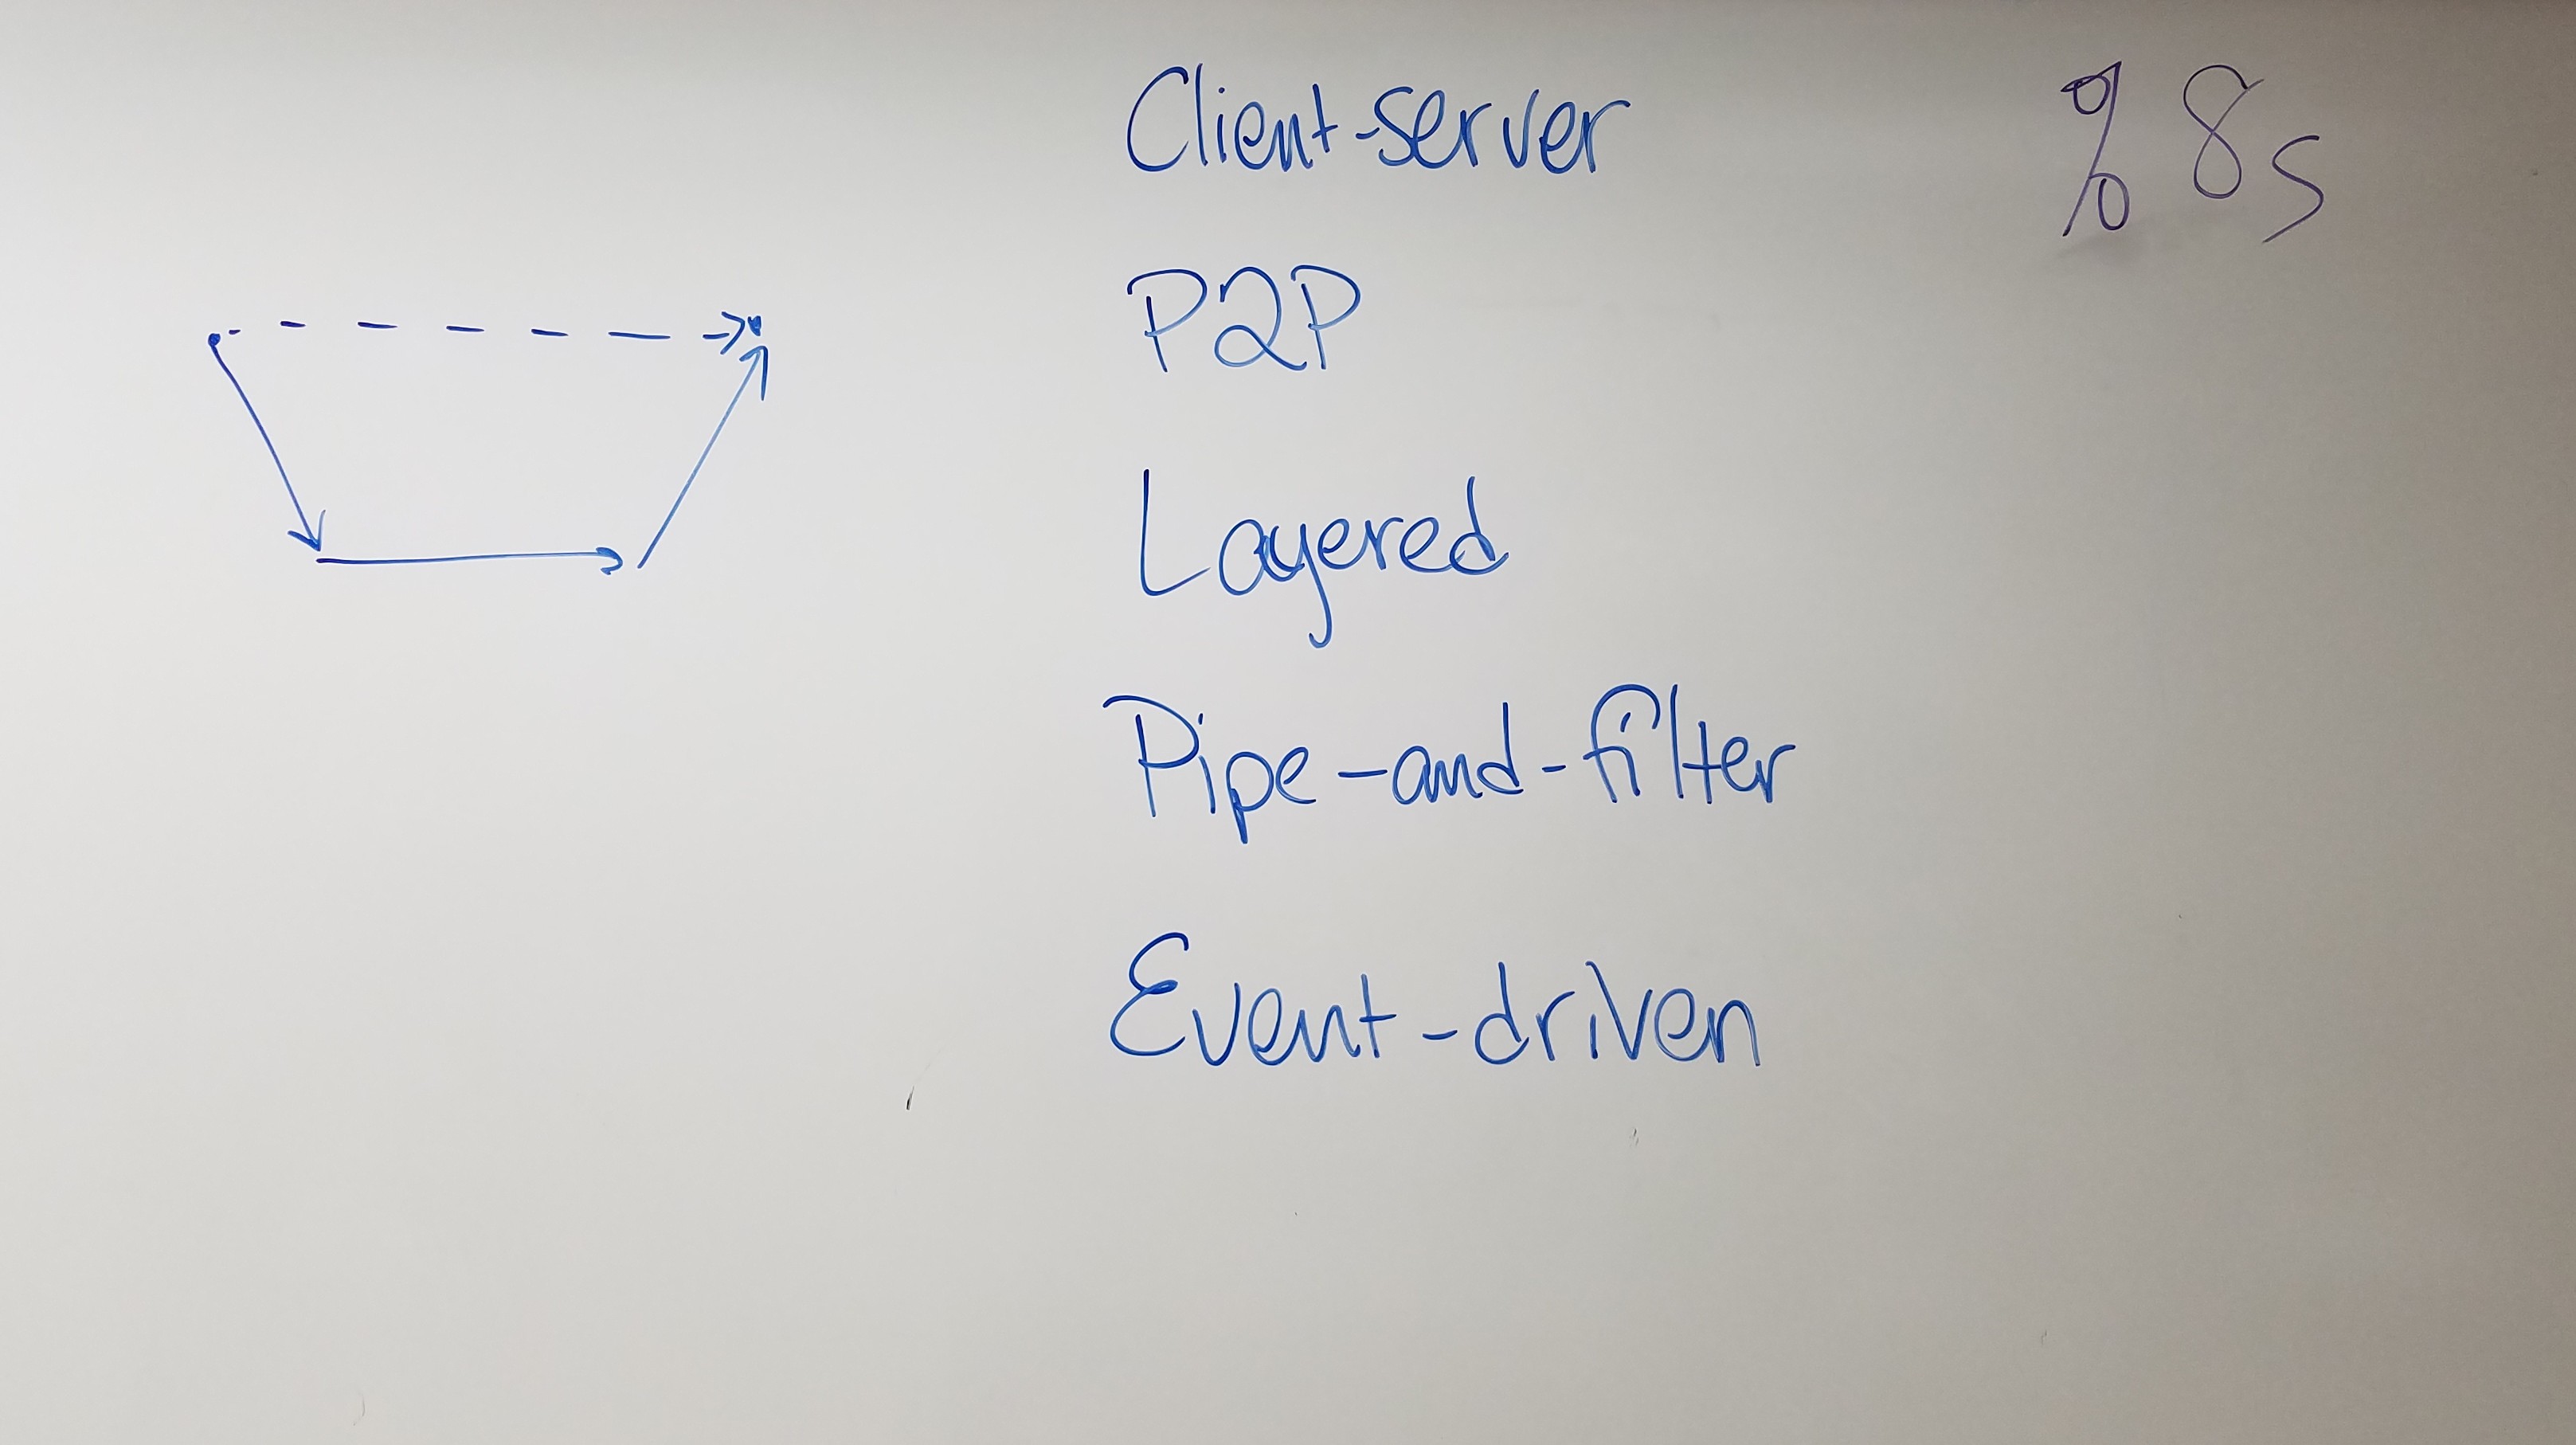 Client-server
%8s
P2P
Layered
Pipe-and-filter
Event-driven